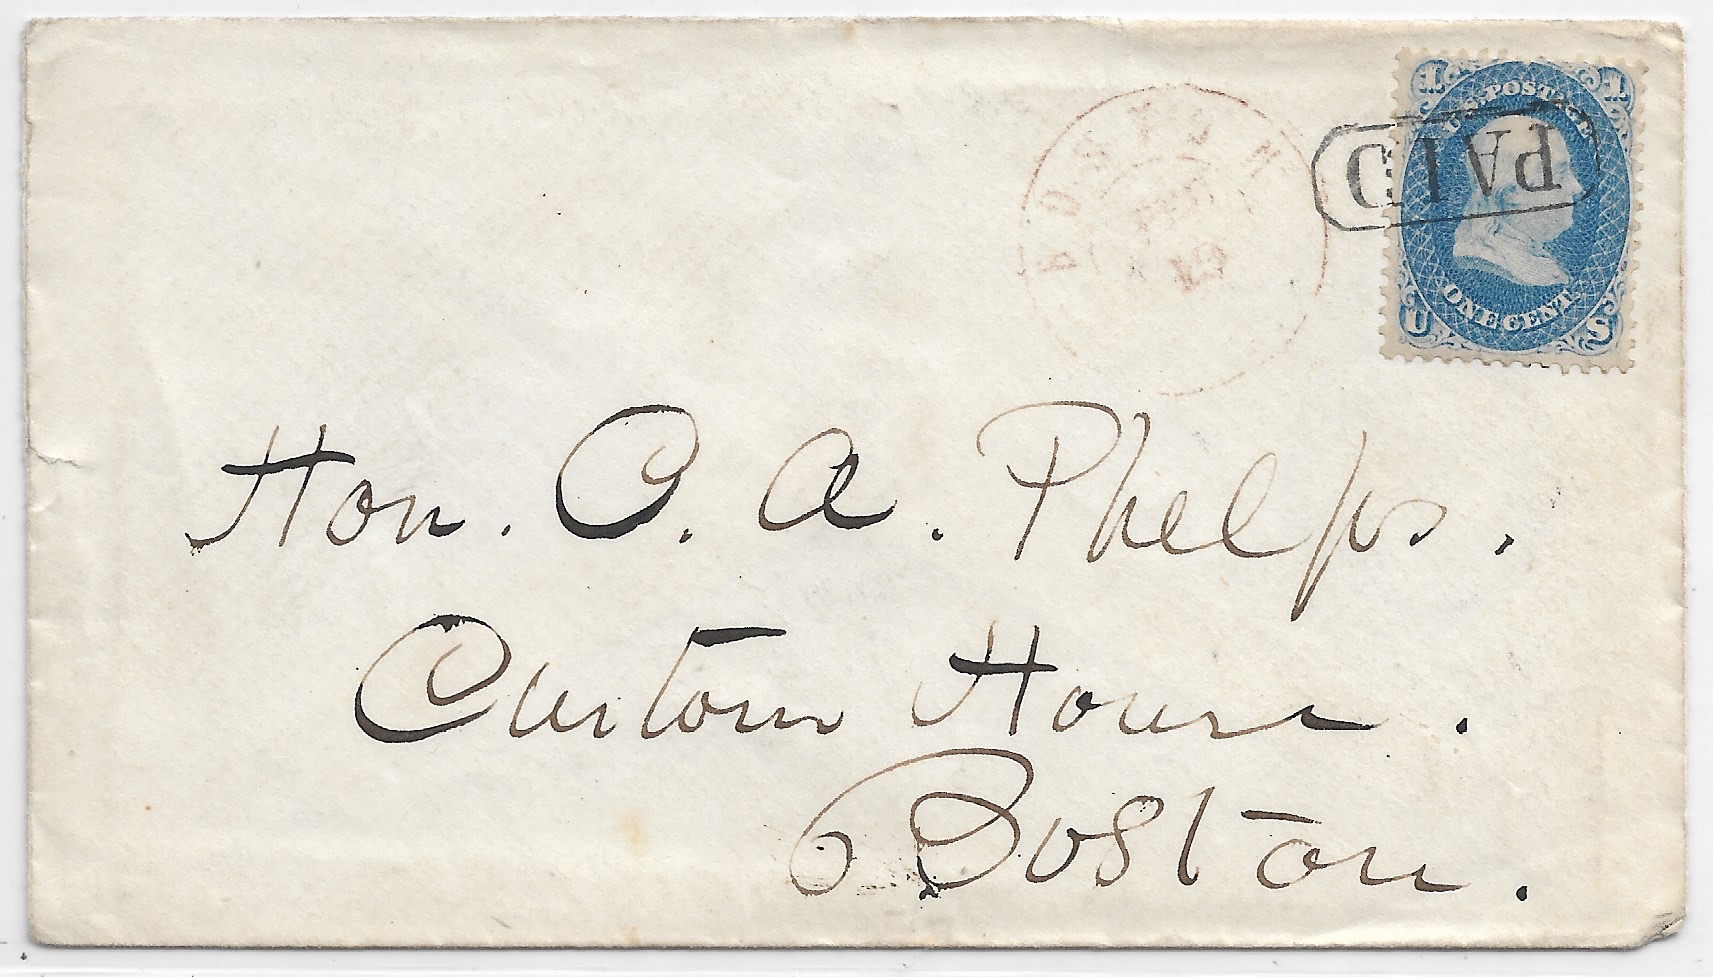 BOSTON
1 U.S. POSTAGE 1
PAID
ONE CENT.
U S
Hon. C. A. Phelps.
Custom House.
Boston.